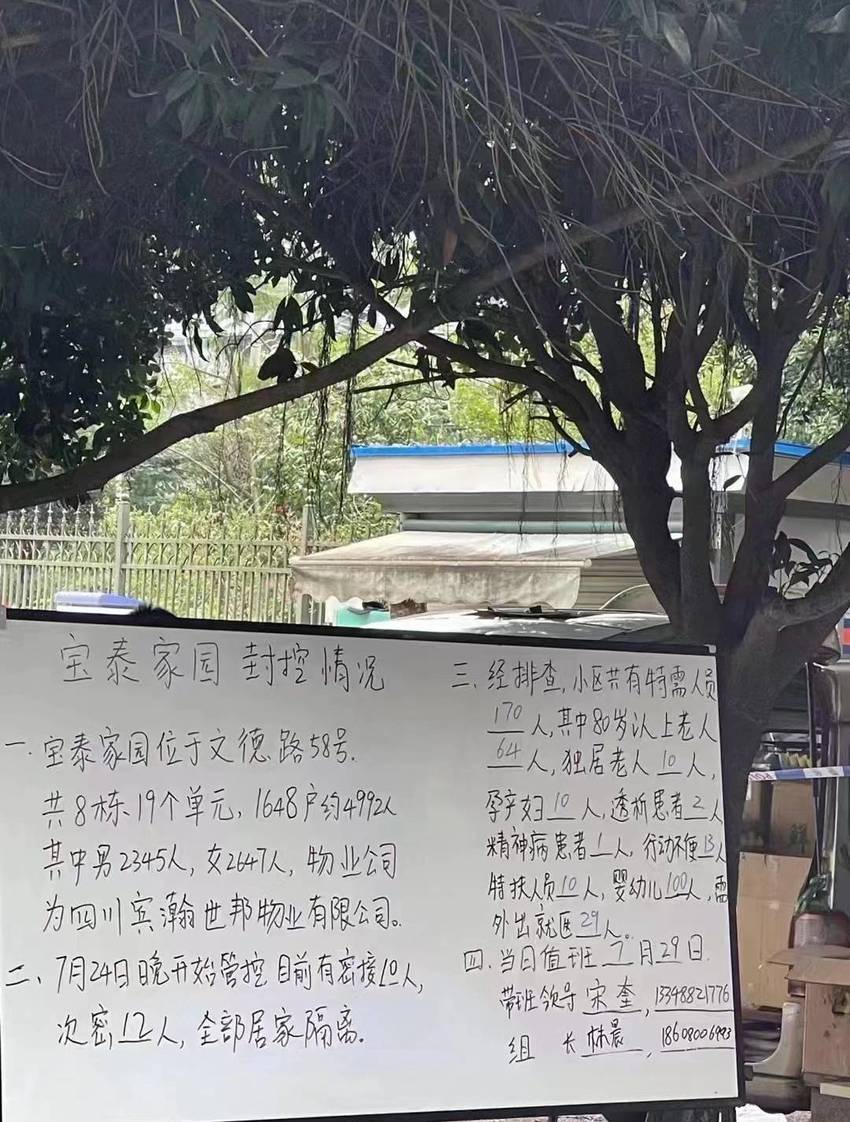 宝泰家园封控情况
一.宝泰家园位于文德路58号.
共8栋、19个单元,1648户约4992人
其中男2345人,女2647人,物业公司
为四川宾瀚世邦物业有限公司。
二、7月24日晚开始管控目前有密接10人,
次密,12人,全部居家隔离。
三.经排查,小区共有特需人员
170人,其中80岁以上老人
64人,独居老人10人,
孕产妇10人,透析患者2人
精神病患者1人,行动不便13人
特扶人员10人,婴幼儿100人,需
外出就医29人。
四.当日值班7月29日.
带班领导宋奎,13348821776
组长林晨,